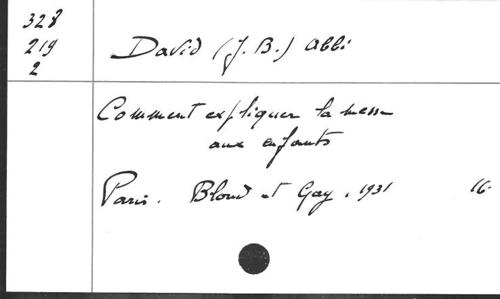 328
219
2
David (J. B.) abbé
Comment expliquer la messe
aux enfants
Paris. Bloud et Gay, 1931 16